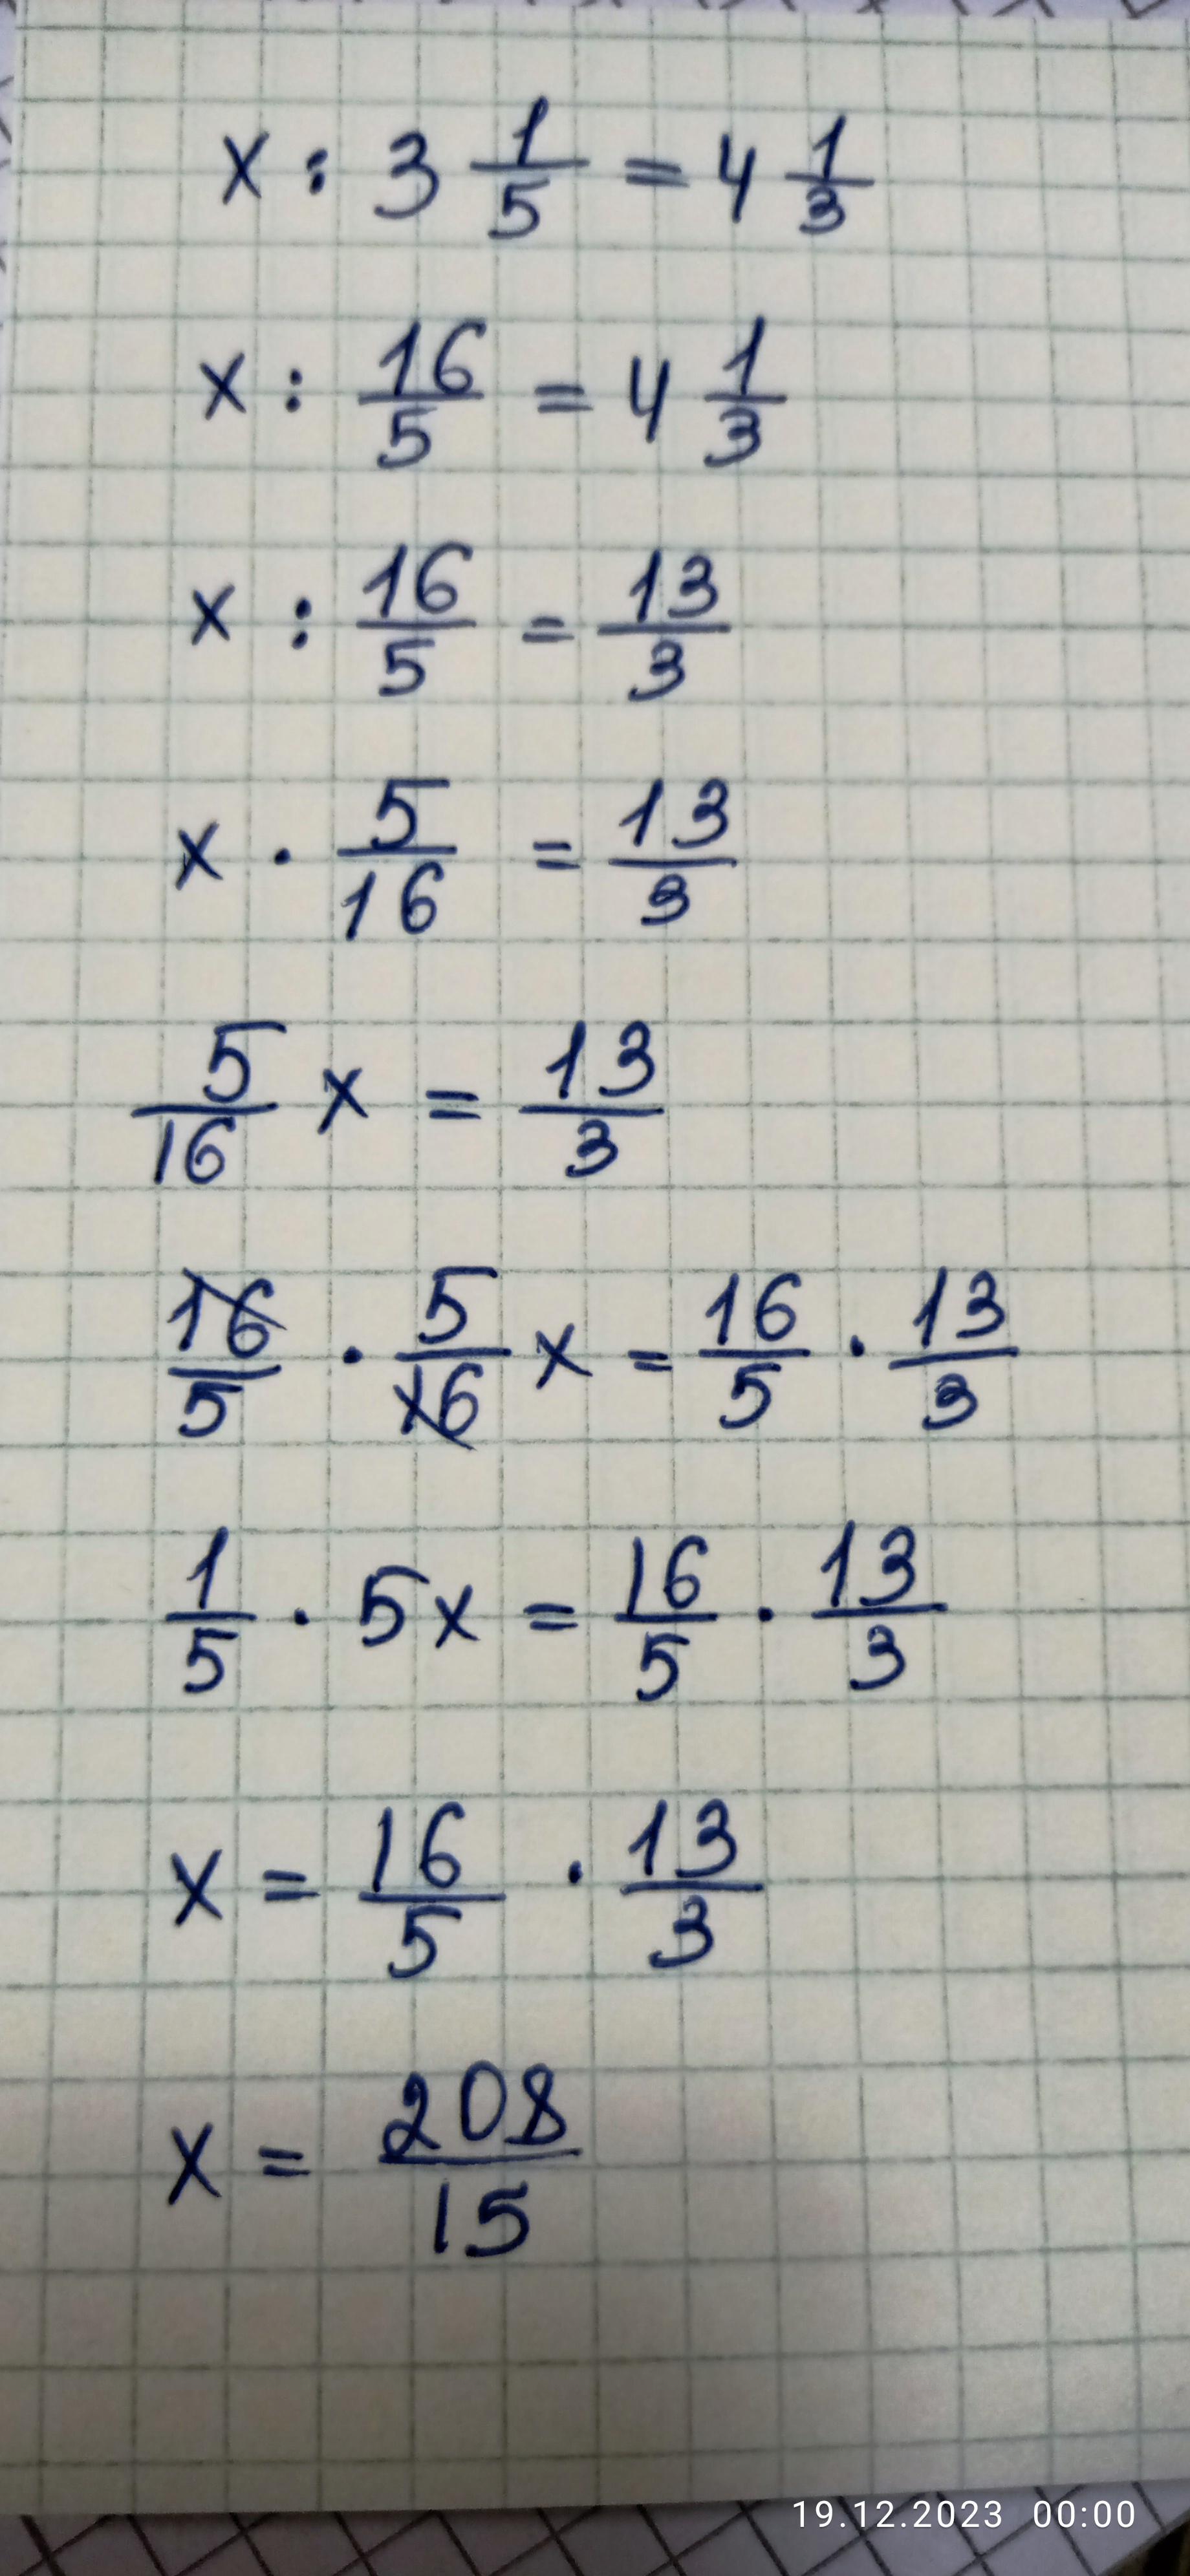 x : 3 1/5 = 4 1/3
x : 16/5 = 4 1/3
x : 16/5 = 13/3
x · 5/16 = 13/3
5/16 x = 13/3
16/5 · 5/16 x = 16/5 · 13/3
1/5 · 5x = 16/5 · 13/3
x = 16/5 · 13/3
x = 208/15
19.12.2023 00:00